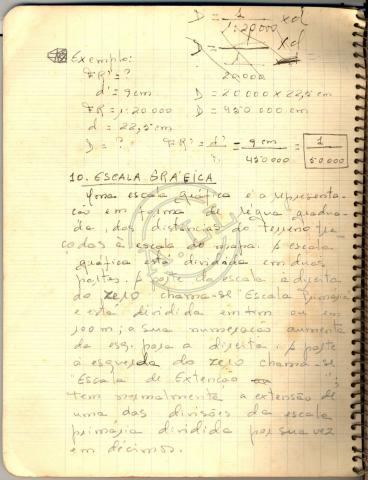 D = 1/1:20000 x d
Exemplo: D = x d
FR' = ? 20000
d' = 9cm D = 20 000 x 22,5 cm
FR = 1:20 000 D = 450 000 cm
d = 22,5 cm
D = ? FR' = d'/D = 9cm/450000 = 1/50000
10. ESCALA GRÁFICA
Uma escala gráfica é a representa-
ção em forma de régua gradua-
da, das distancias do terreno
dos à escala do mapa. A escala
gráfica está dividida em duas
partes. A parte da escala à direita
do zero chama-se "Escala Primária
e está dividida em 1km ou em
100m; a sua numeração aumenta
da esq. para a direita. A parte
à esquerda do zero chama-se
"Escala de Extenção ";
tem normalmente a extensão de
uma das divisões da escala
primária dividida por sua vez
em décimos.